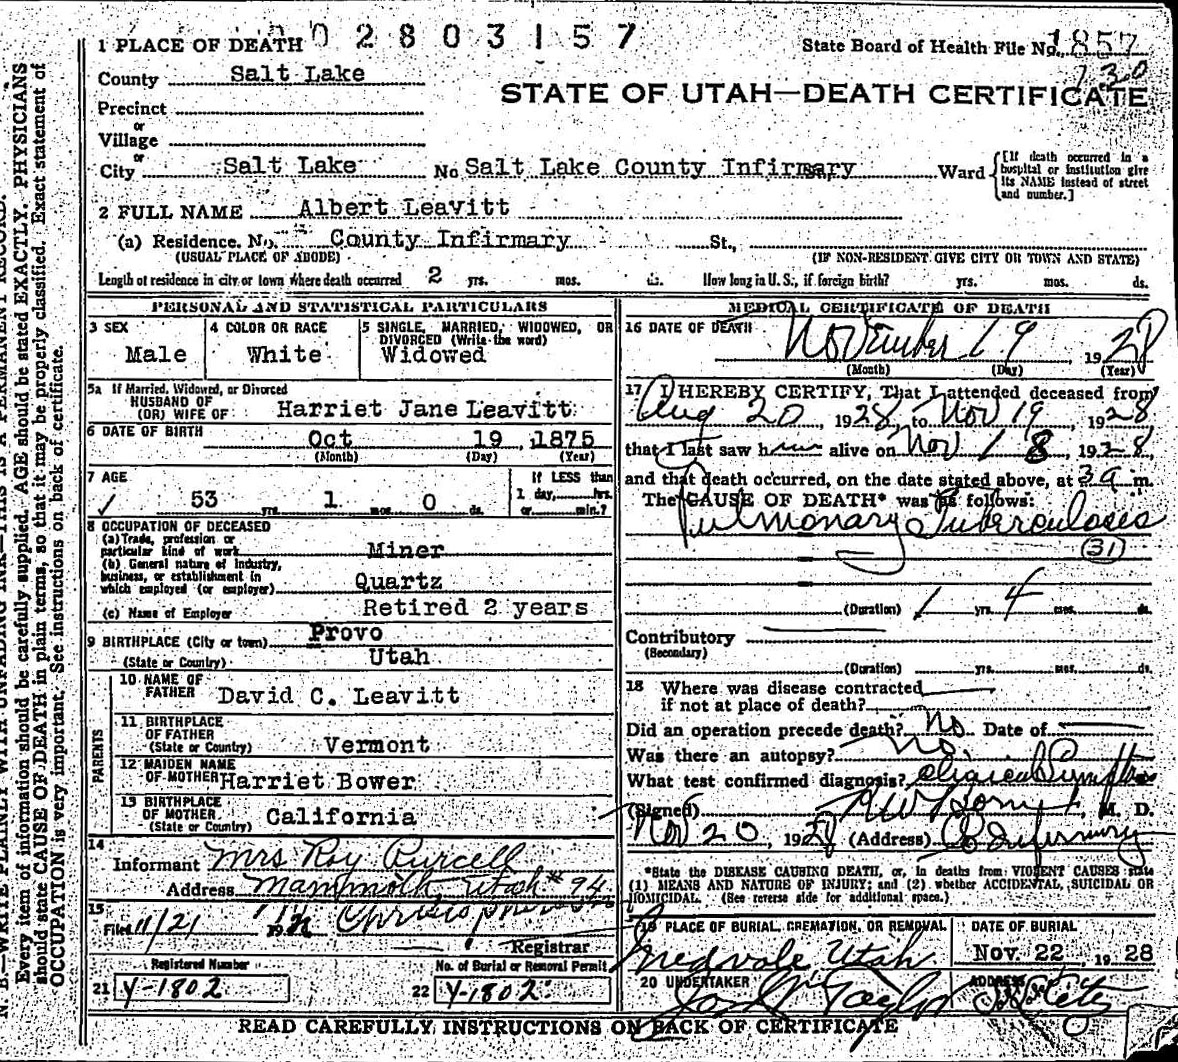 02803157
1 PLACE OF DEATH
State Board of Health File No. 1857
130
County Salt Lake
STATE OF UTAH—DEATH CERTIFICATE
Precinct
or
Village
or
City Salt Lake No Salt Lake County Infirmary Ward
[If death occurred in a hospital or institution give its NAME instead of street and number.]
2 FULL NAME Albert Leavitt
(a) Residence. No. County Infirmary St.,
(USUAL PLACE OF ABODE) (IF NON-RESIDENT GIVE CITY OR TOWN AND STATE)
Length of residence in city or town where death occurred 2 yrs. mos. ds. How long in U. S., if foreign birth? yrs. mos. ds.
PERSONAL AND STATISTICAL PARTICULARS
3 SEX Male
4 COLOR OR RACE White
5 SINGLE, MARRIED, WIDOWED, OR DIVORCED (Write the word)
Widowed
5a If Married, Widowed, or Divorced
HUSBAND OF
(OR) WIFE OF Harriet Jane Leavitt
6 DATE OF BIRTH Oct 19, 1875
(Month) (Day) (Year)
7 AGE 53 yrs. 1 mos. 0 ds.
If LESS than
1 day, hrs.
or min.?
8 OCCUPATION OF DECEASED
(a) Trade, profession or
particular kind of work Miner
(b) General nature of Industry,
business, or establishment in
which employed (or employer) Quartz
(c) Name of Employer Retired 2 years
9 BIRTHPLACE (City or town) Provo
(State or Country) Utah
PARENTS
10 NAME OF
FATHER David C. Leavitt
11 BIRTHPLACE
OF FATHER
(State or Country) Vermont
12 MAIDEN NAME
OF MOTHER Harriet Bower
13 BIRTHPLACE
OF MOTHER
(State or Country) California
14
Informant Mrs Roy Purcell
Address Mammoth Utah # 94
15
Filed 11/21 19
Registrar
Registered Number
21 Y-1802
No. of Burial or Removal Permit
22 Y-1802
MEDICAL CERTIFICATE OF DEATH
16 DATE OF DEATH
November 19 1928
(Month) (Day) (Year)
17 I HEREBY CERTIFY, That I attended deceased from
Aug 20 1928, to Nov 19 1928
that I last saw him alive on Nov 18 1928,
and that death occurred, on the date stated above, at 3 a m.
The CAUSE OF DEATH* was as follows:
Pulmonary Tuberculosis
31
(Duration) 1 yrs. 4 mos. ds.
Contributory
(Secondary)
(Duration) yrs. mos. ds.
18 Where was disease contracted
if not at place of death?
Did an operation precede death? No Date of
Was there an autopsy? No
What test confirmed diagnosis? Clinical Symptoms
(Signed) M. D.
Nov 20 1928 (Address) Co Infirmary
*State the DISEASE CAUSING DEATH, or, in deaths from VIOLENT CAUSES state
(1) MEANS AND NATURE OF INJURY; and (2) whether ACCIDENTAL, SUICIDAL OR
HOMICIDAL. (See reverse side for additional space.)
19 PLACE OF BURIAL, CREMATION, OR REMOVAL
Midvale, Utah
DATE OF BURIAL
Nov. 22 19 28
20 UNDERTAKER
Taylor
ADDRESS
City
READ CAREFULLY INSTRUCTIONS ON BACK OF CERTIFICATE
N. B.—WRITE PLAINLY WITH UNFADING INK—THIS IS A PERMANENT RECORD.
Every item of information should be carefully supplied. AGE should be stated EXACTLY. PHYSICIANS
should state CAUSE OF DEATH in plain terms, so that it may be properly classified. Exact statement of
OCCUPATION is very important. See instructions on back of certificate.